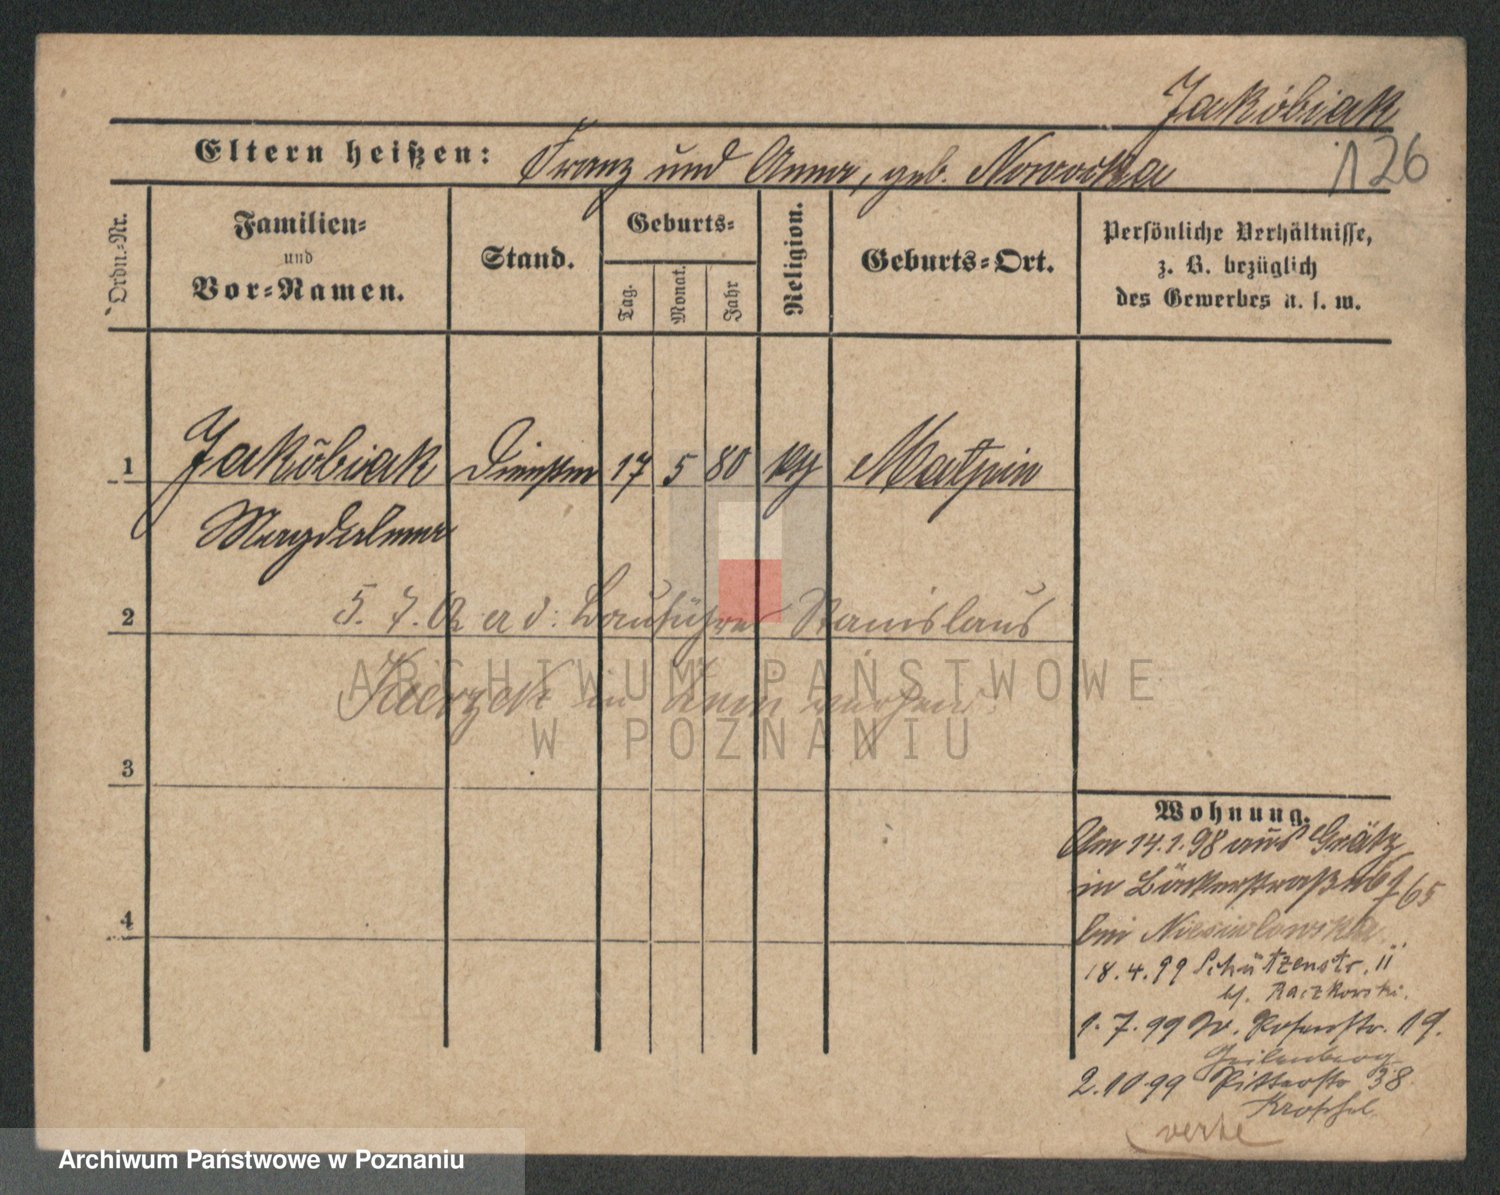 Jakóbiak
126
Eltern heißen: Franz und Anna, geb. Nowicka
Ordn.-Nr.
Familien-
und
Vor-Namen.
Stand.
Geburts-
Tag.
Monat.
Jahr
Religion.
Geburts-Ort.
Persönliche Verhältnisse,
z. B. bezüglich
des Gewerbes u. s. w.
1 Jakóbiak 17 5 80
Magdalena
2
5. 7. 02 Bauführer Stanislaus
in
ARCHIWUM PAŃSTWOWE
W POZNANIU
3
Wohnung.
Am 14.1.98 aus Grätz
in Bäckerstraße
4
bei Niesiolowska
18.4.99 Schützenstr. 11
bj. Raczkowski.
1.7.99 W. 19.
2.10.99 Ritterstr 38
verte
Archiwum Państwowe w Poznaniu